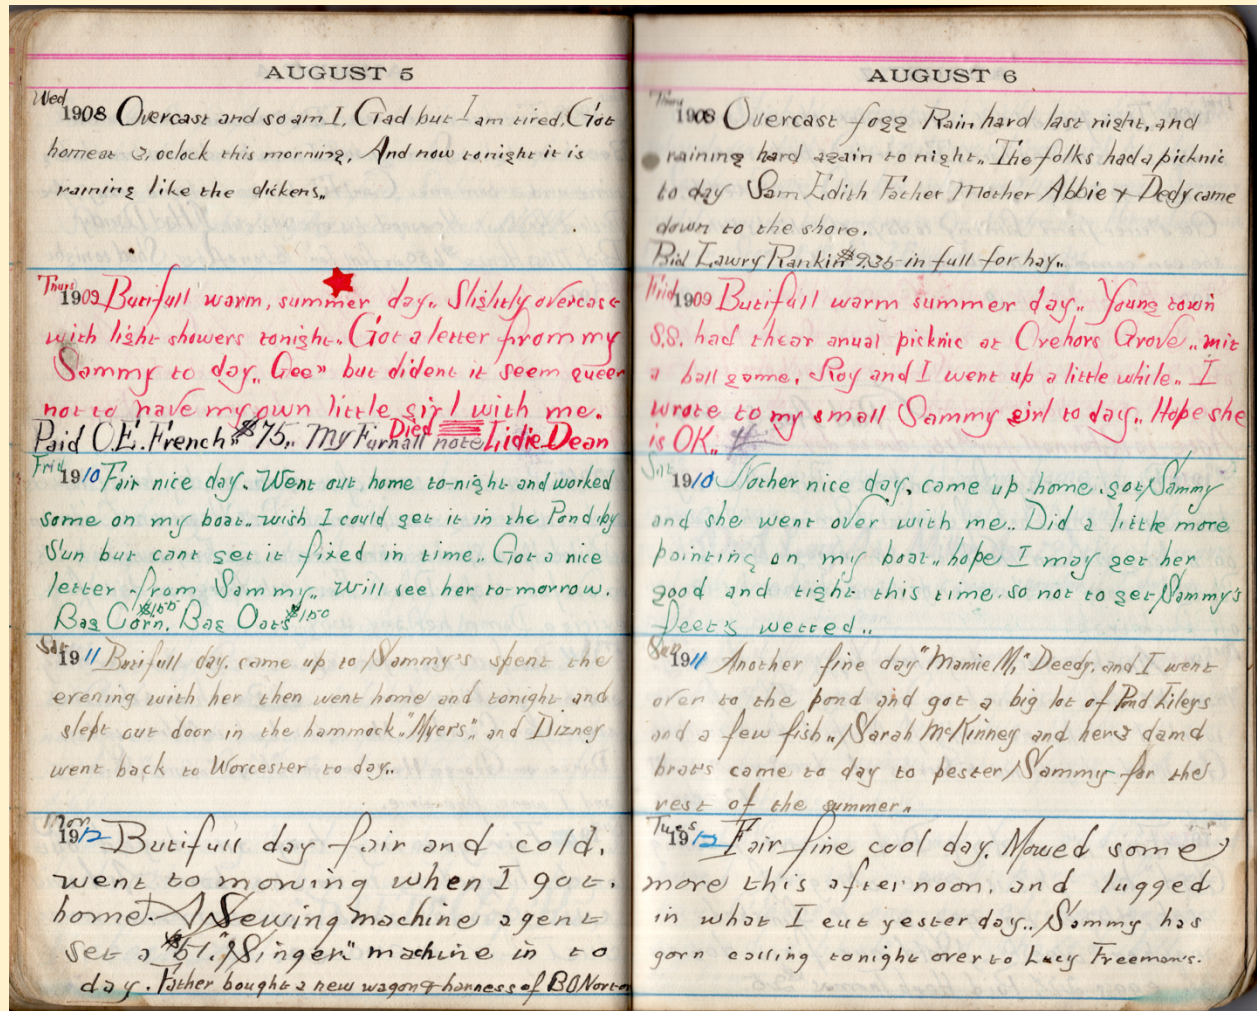 AUGUST 5
Wed
1908 Overcast and so am I, Glad but I am tired, Got
home at 3, oclock this morning, And now tonight it is
raining like the dickens,,
Thurs
1909 Butifull warm, summer day,, Slightly overcast
with light showers tonight,, Got a letter from my
Sammy to day,, Gee" but dident it seem queer
not to have my own little girl with me.
Paid O.E. French,, $75,, My Furnall note Died Lidie Dean
Frid
1910 Fair nice day. Went out home to-night and worked
some on my boat,, wish I could get it in the Pond by
Sun but cant get it fixed in time,, Got a nice
letter from Sammy,, will see her to-morrow.
Bag Corn, $1.55 Bag Oats $1.50
Sat
1911 Butifull day, came up to Sammy's spent the
evening with her then went home and tonight and
slept out door in the hammock,, "Myers",, and Dizney
went back to Worcester to day,,
Mon
1912 Butifull day fair and cold,
went to mowing when I got,
home. A Sewing machine agent
set a $51. "Singer" machine in to
day. Father bought a new wagon & harness of BO Norton
AUGUST 6
Thurs
1908 Overcast fogg Rain hard last night, and
raining hard again to night,, The folks had a picknic
to day Sam Edith Father Mother Abbie & Dedy came
down to the shore.
Paid Lawry Rankin $9.35 in full for hay,,
Frid
1909 Butifull warm summer day,, Young town
S.S. had thear anual picknic at Orehors Grove,, mit
a ball game, Roy and I went up a little while,, I
wrote to my small Sammy girl to day,, Hope she
is OK,,
Sat
1910 Nother nice day, came up home got Sammy
and she went over with me,, Did a little more
painting on my boat,, hope I may get her
good and tight this time, so not to get Sammy's
Feet's wetted,,
Sun
1911 Another fine day "Mamie M," Deedy, and I went
over to the pond and got a big lot of Pond Lileys
and a few fish,, Sarah McKinney and hers damd
brats came to day to pester Sammy for the
rest of the summer,,
Tues
1912 Fair fine cool day. Mowed some
more this afternoon, and lugged
in what I cut yesterday,, Sammy has
gorn calling tonight over to Lucy Freemans.